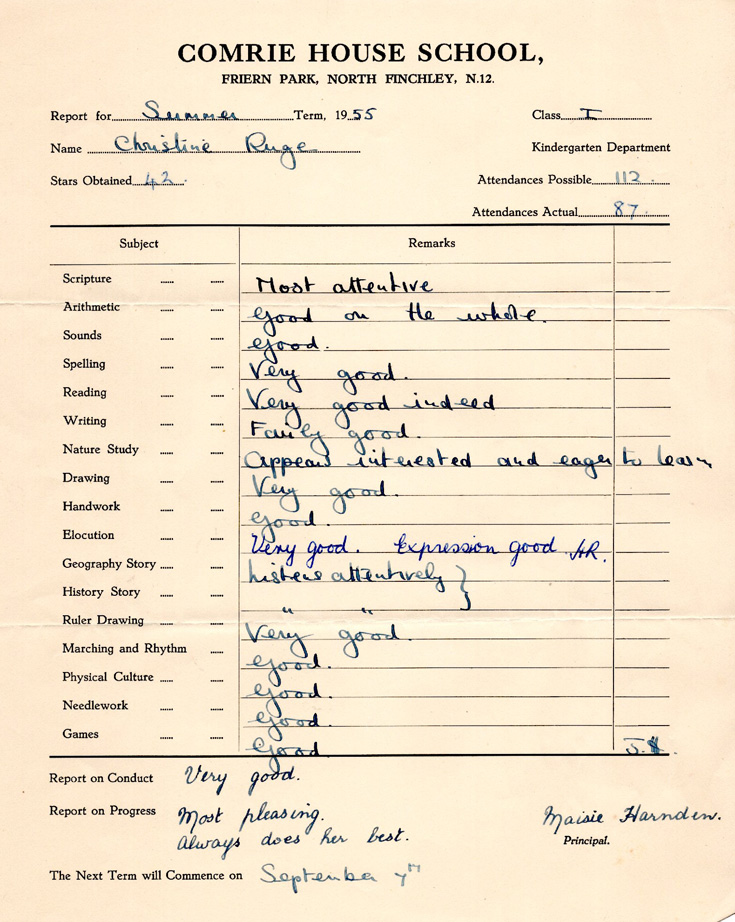 COMRIE HOUSE SCHOOL,
FRIERN PARK, NORTH FINCHLEY, N.12.
Report for Summer Term, 1955 Class I
Name Christine Ruge Kindergarten Department
Stars Obtained 42. Attendances Possible 112.
Attendances Actual 87.
Subject Remarks
Scripture Most attentive
Arithmetic Good on the whole.
Sounds Good.
Spelling Very good.
Reading Very good indeed
Writing Fairly good.
Nature Study Appears interested and eager to learn
Drawing Very good.
Handwork Good.
Elocution Very good. Expression good. HR.
Geography Story Listens attentively }
History Story " " }
Ruler Drawing Very good.
Marching and Rhythm Good.
Physical Culture Good.
Needlework Good.
Games Good
Report on Conduct Very good.
Report on Progress Most pleasing. Maisie Harnden.
Always does her best. Principal.
The Next Term will Commence on September 7th